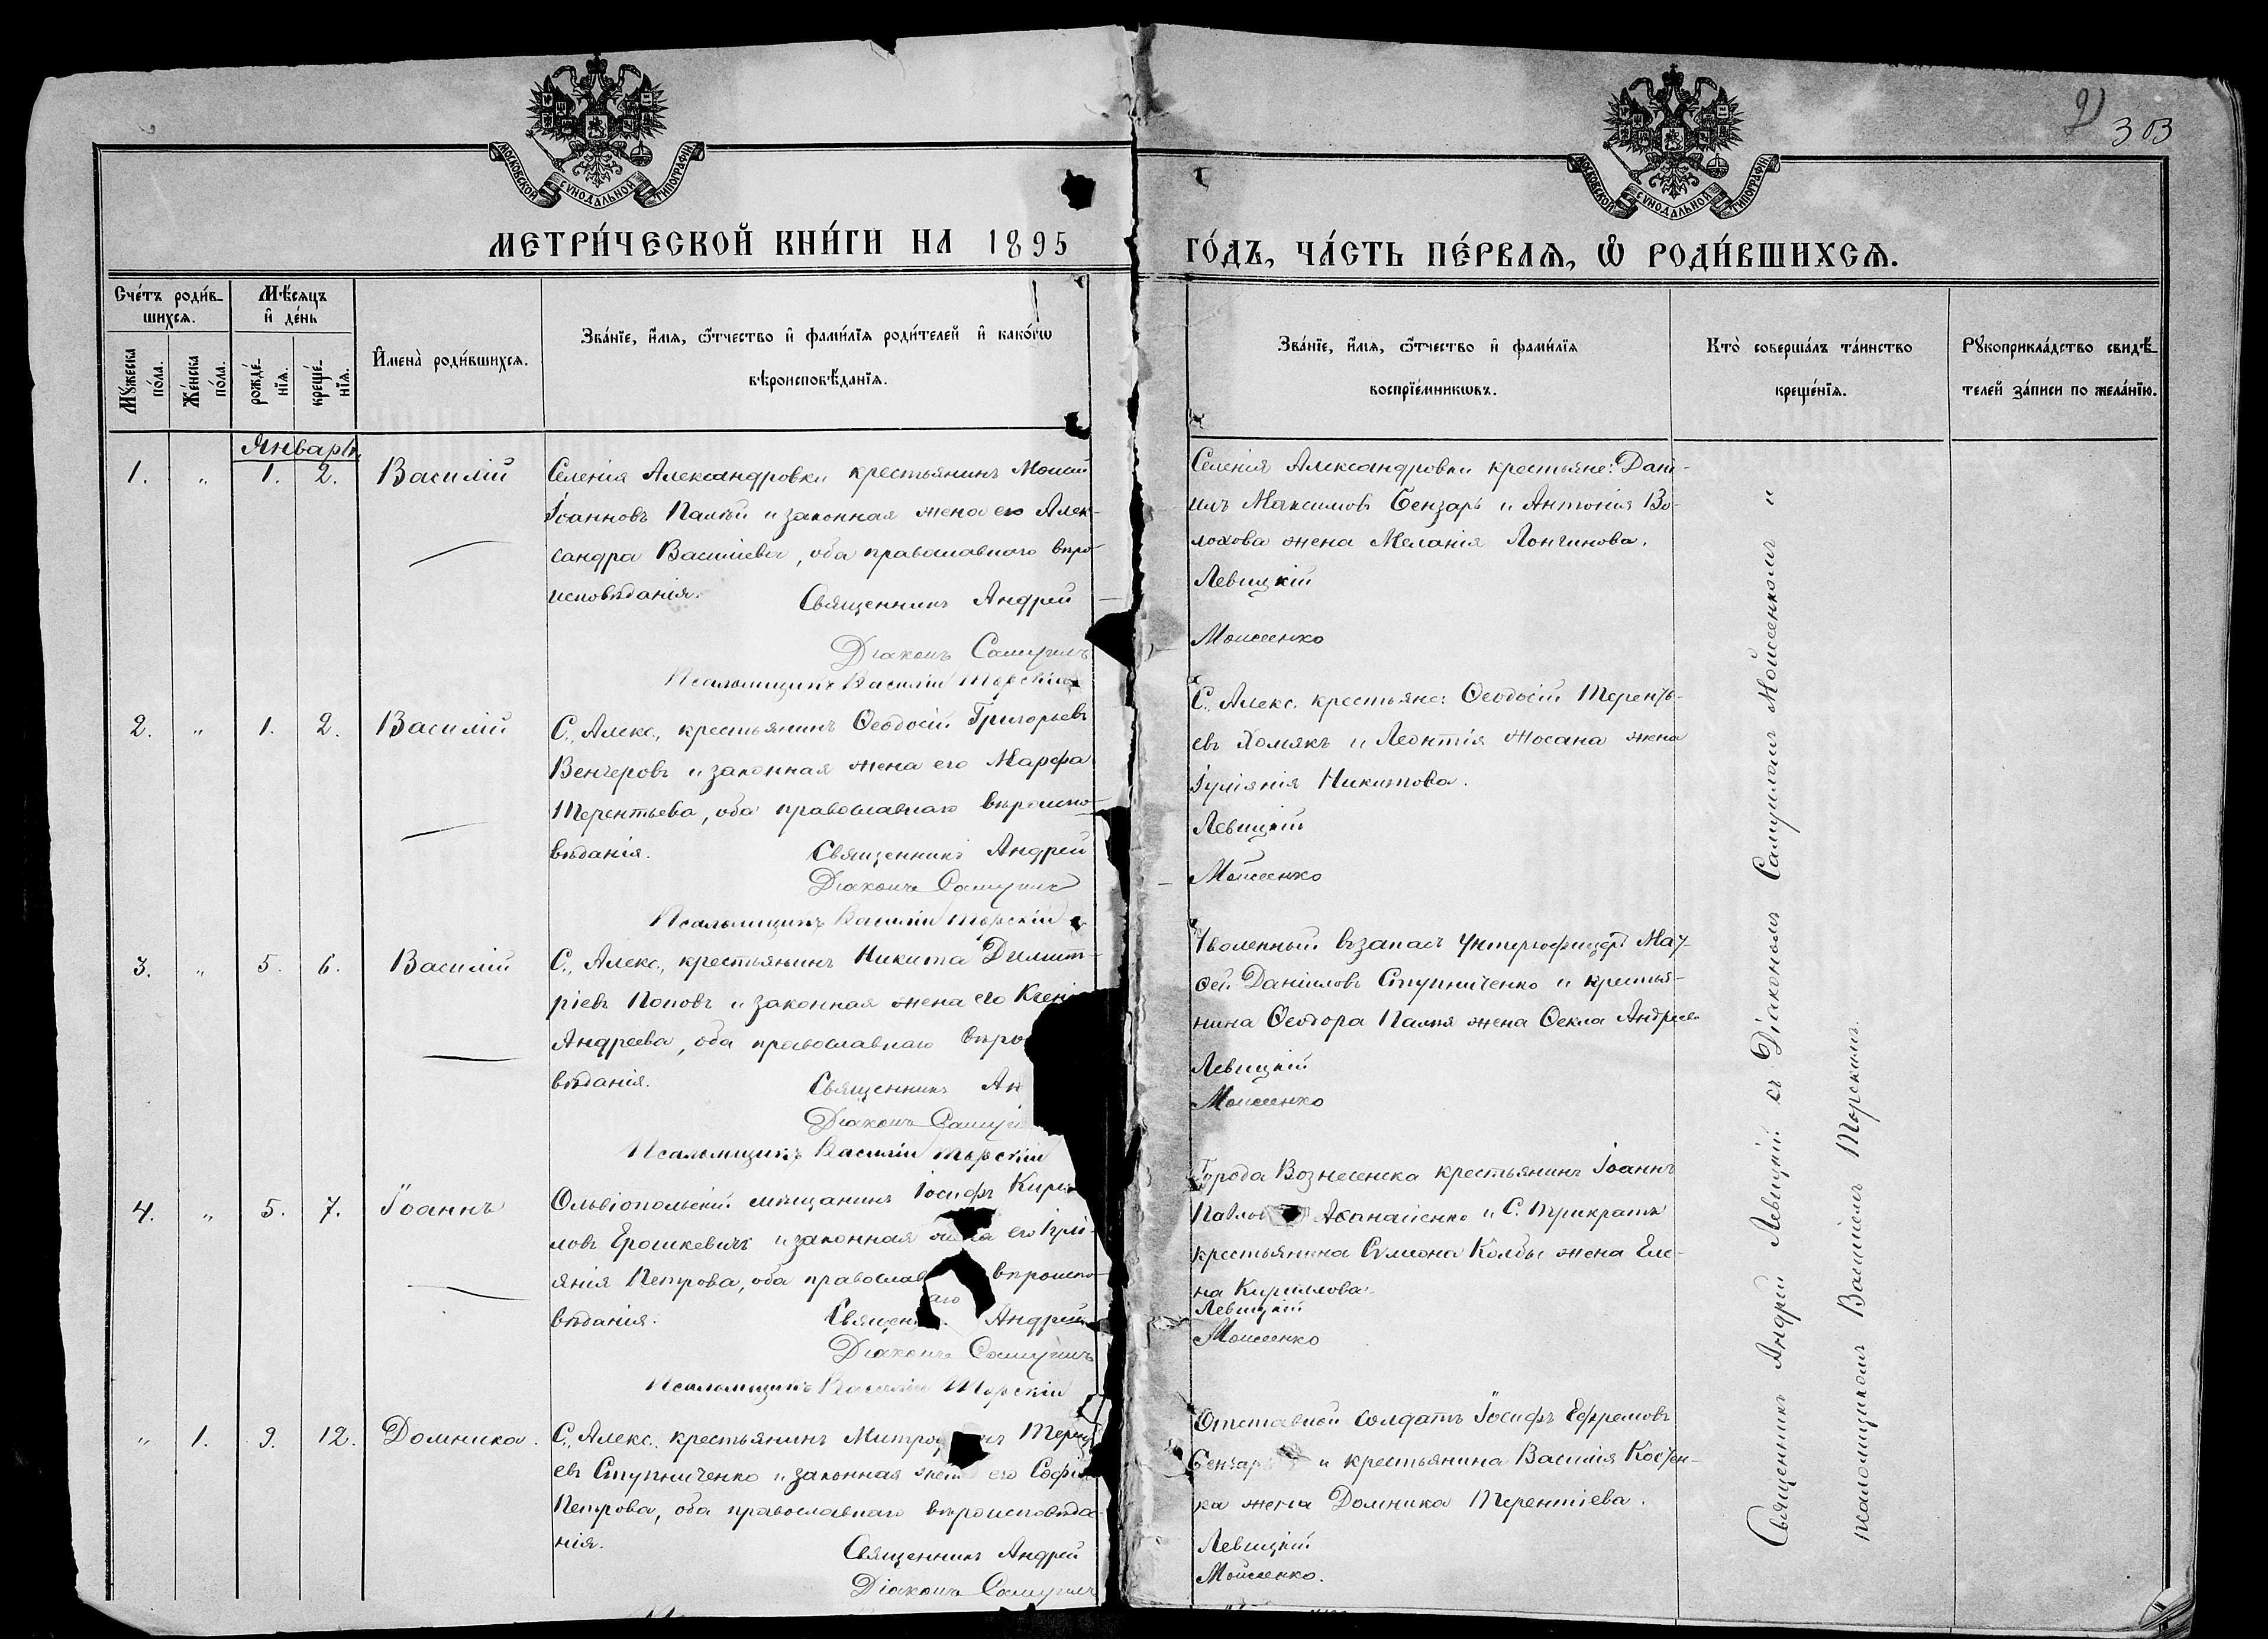 2)
303
МОСКОВСКОЙ СУНОДАЛЬНОЙ ТИПОГРАФІИ
МОСКОВСКОЙ СУНОДАЛЬНОЙ ТИПОГРАФІИ
МЕТРИ́ЧЕСКОЙ КНИ́ГИ НА 1895
ГО́ДЪ, ЧА́СТЬ ПЕ́РВАѦ, Ѡ҆ РОДИ́ВШИХСѦ.
Сче́тъ роди́в-
шихсѧ.
Мꙋ́жеска
по́ла.
Же́нска
по́ла.
Мѣ́сѧцъ
и҆ де́нь
рожде́-
нїѧ.
креще́-
нїѧ.
И҆мена̀ роди́вшихсѧ.
Зва́нїе, и҆́мѧ, ѻ҆́тчество и҆ фами́лїѧ роди́телей и҆ како́гѡ
вѣроисповѣ́данїѧ.
Зва́нїе, и҆́мѧ, ѻ҆́тчество и҆ фами́лїѧ
воспрїе́мникѡвъ.
Кто̀ соверша́лъ та́инство
креще́нїѧ.
Рꙋкоприкла́дство свидѣ́-
телей за́писи по жела́нїю.
Январь
1. " 1. 2. Василій
Селенія Александровки крестьянинъ Моисей
Іоанновъ Палій и законная жена его Алек-
сандра Васильева, оба православнаго вѣро-
исповѣданія.
Священникъ Андрей
Діаконъ Самуилъ
Псаломщикъ Василій Торскій
Селенія Александровки крестьяне: Дані-
илъ Максимовъ Бензарь и Антонія Во-
лохова жена Меланія Лонгинова.
Левицкій
Моисеенко
2. " 1. 2. Василій
С. Алекс. крестьянинъ Ѳеодосій Григорьевъ
Венгеровъ и законная жена его Марфа
Терентьева, оба православнаго вѣроиспо-
вѣданія.
Священникъ Андрей
Діаконъ Самуилъ
Псаломщикъ Василій Торскій
С. Алекс. крестьяне: Ѳеодосій Терентъ-
евъ Хомякъ и Леонтія Жосана жена
Іуліянія Никитова.
Левицкій
Моисеенко
3. " 5. 6. Василій
С. Алекс. крестьянинъ Никита Димит-
ріевъ Поповъ и законная жена его Ксені
Андреева, оба православнаго вѣро
вѣданія.
Священникъ Ан
Діаконъ Самуи
Псаломщикъ Василій Торскій
Уволенный въ запасъ унтеръ-офицеръ Мат-
ѳей Даніиловъ Ступниченко и крестья-
нина Ѳеодора Палія жена Ѳекла Андреева
Левицкій
Моисеенко
4. " 5. 7. Іоаннъ
Ольвіопольскій мѣщанинъ Іосифъ Кири
ловъ Ерошкевичъ и законная жена его Іулі-
янія Петрова, оба православнаго вѣроиспо-
вѣданія.
Священ. Андрей
Діаконъ Самуилъ
Псаломщикъ Василій Торскій
Города Вознесенска крестьянинъ Іоаннъ
Павлов Аѳанасіенко и С. Трикратъ
крестьянина Сѵмеона Колбы жена Еле-
на Кириллова.
Левицкій
Моисеенко
" 1. 9. 12. Домника.
С. Алекс. крестьянинъ Митро нъ Терент
евъ Ступниченко и законная жена его Софія
Петрова, оба православнаго вѣроисповѣда-
нія.
Священникъ Андрей
Діаконъ Самуилъ
Отставной солдатъ Іосифъ Ефремовъ
Бензарь и крестьянина Василія Костен-
ка жена Домника Терентіева.
Левицкій
Моисеенко.
Священникъ Андрей Левицкій съ Діакономъ Самуиломъ Моисеенкомъ и
псаломщикомъ Василіемъ Торскимъ.